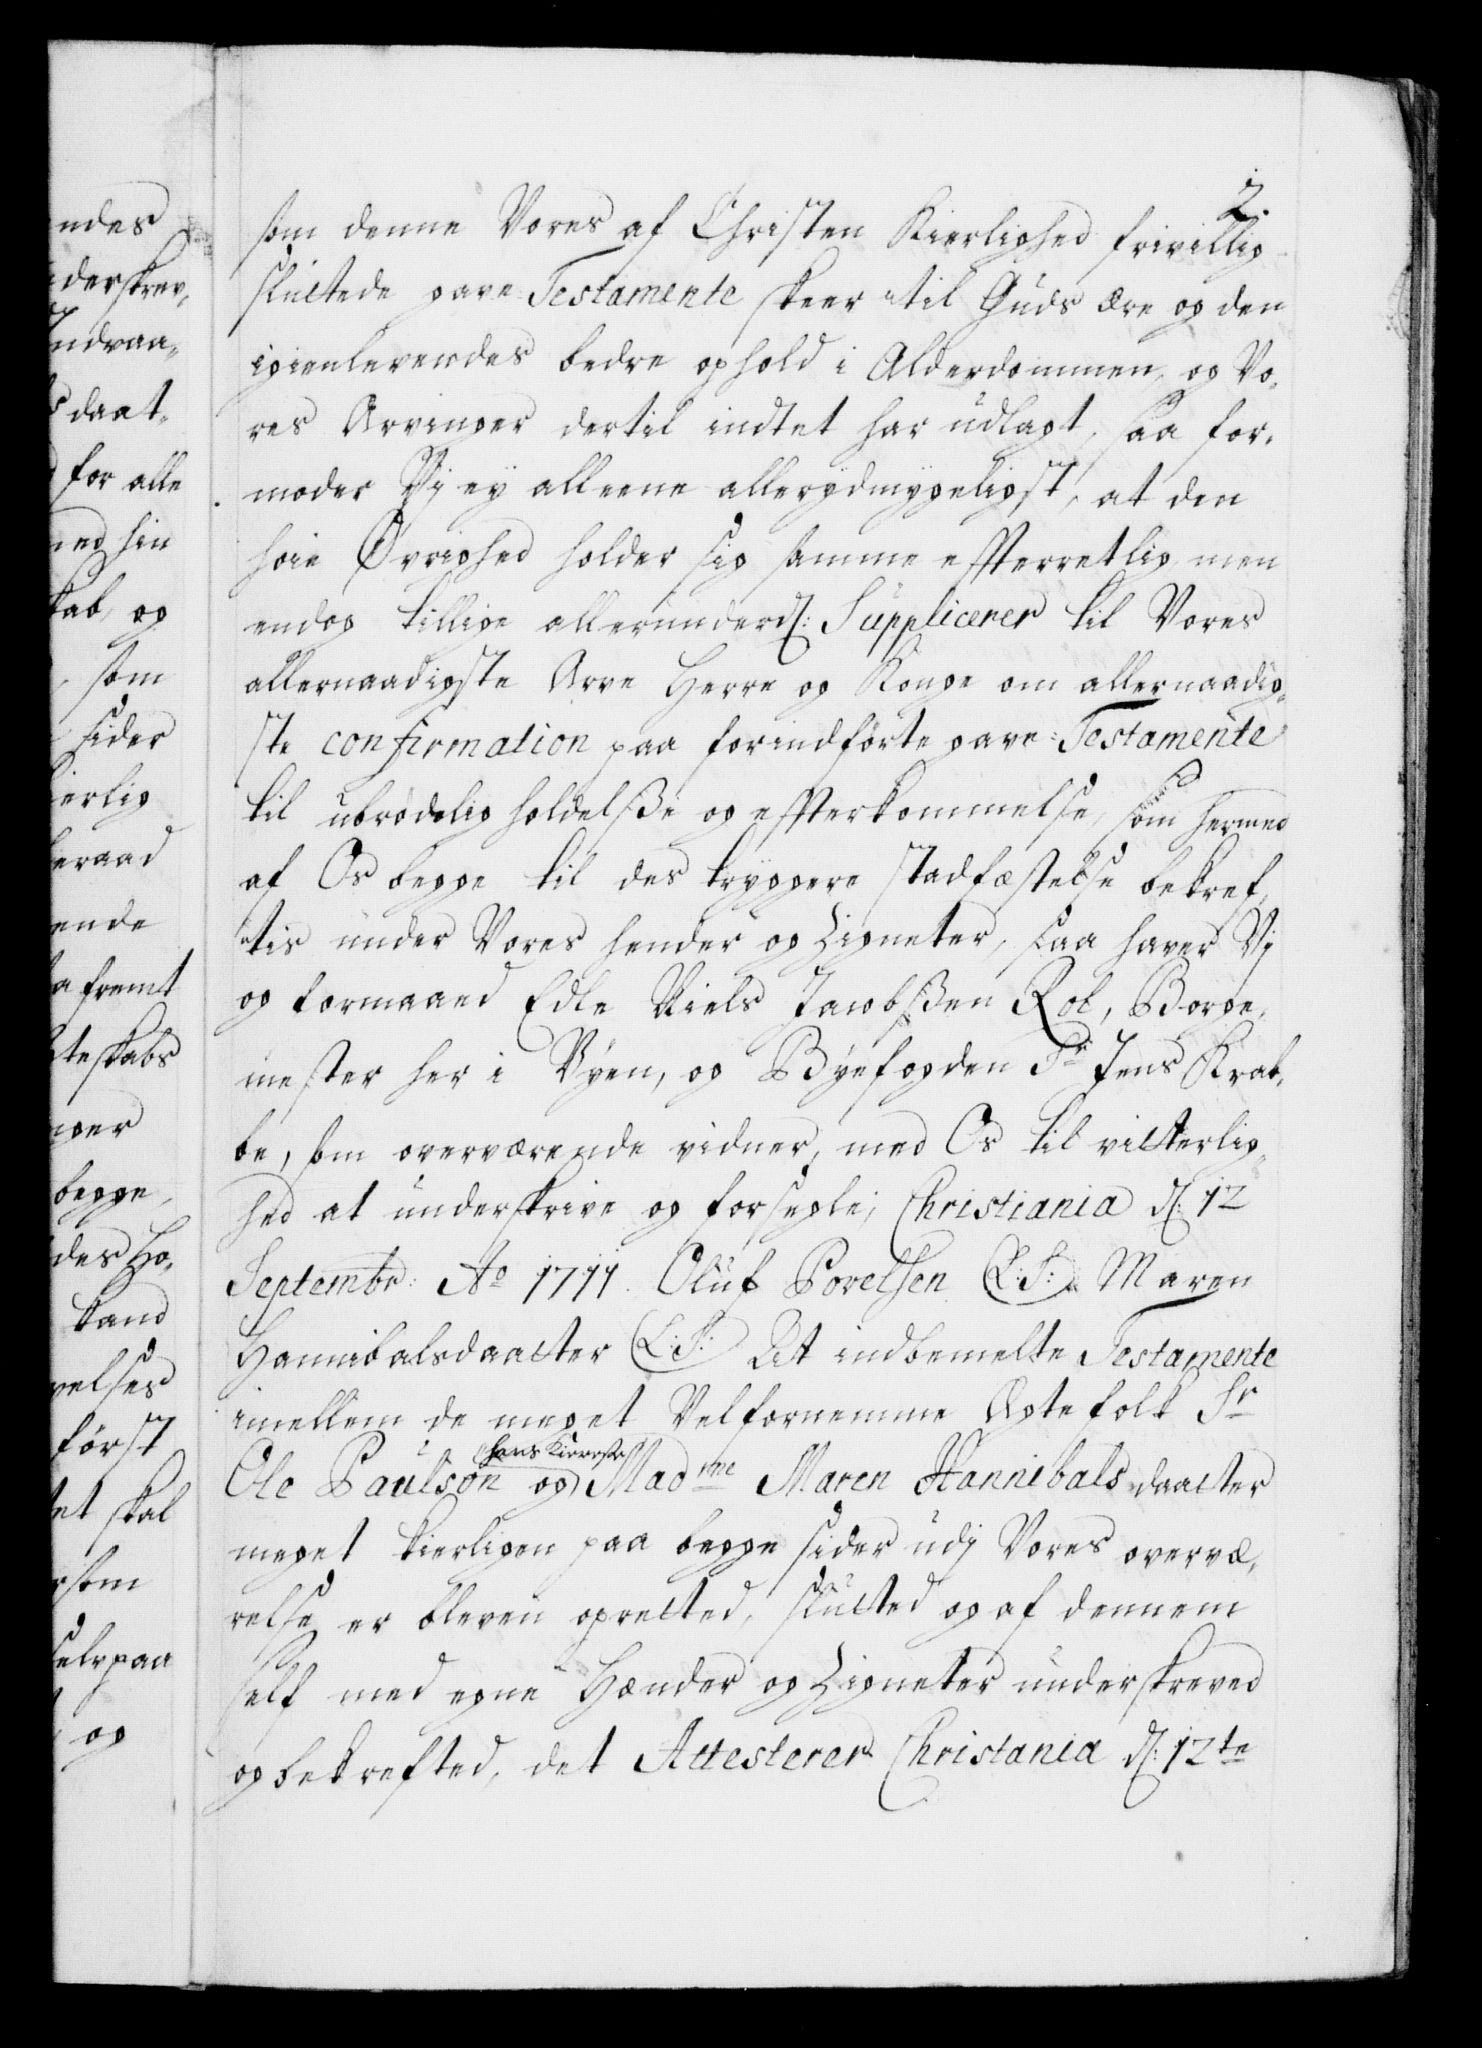 2.
ndes
derskrev,
Indvaa-
s daat-
for alle
ned hin
kab, og
, som
sider
kierlig
beraad
ende
a fremt
teskabs
nger
begge,
des Ho,
kand
velses
først
tet skal
rsom
selv paa
og
som denne Vores af Christen Kierlighed frivillig
sluttede gave Testamente skeer til Guds ære og den
igienlevendes bedre ophold i Alderdommen, og Vo,
res Arvinger dertil indtet har udlagt, saa for-
moder Vj ey alleene allerydmygeligst, at den
høie Øvrighed holder sig samme efterretlig, men
endog tillige allerunderd: Supplicerer til Vores
allernaadigste Arve Herre og Konge om allernaadig,
ste confirmation paa forindførte gave-Testamente
til ubrødelig holdelsse og efterkommelse, som hermed
af Os begge til des tryggere stadfæstelse bekref,
tis under Vores hender og Zigneter, saa haver Vj
og formaaed Edle Niels Jacobssen Rob, Borge,
mester her i Byen, og Byefogden Sr Jens Krab,
be, som overværende vidner, med Os til vitterlig,
hed at underskrive og forsegle; Christiania d: 12
Septembr: Ao 1711. Oluf Povelsen (L:S:) Maren
Hannibalsdaatter (L:S:) At indbemelte Testamente
imellem de meget Velfornemme Ægtefolk Sr
Ole Paulson og hans Kiereste Madme Maren Hannibalsdaatter
meget kierligen paa begge sider udj Vores overvæ,
relse er bleven oprettet, sluttet og af dennem
self med egne Hænder og Zigneter underskreved
og bekrefted, det Attesterer Christania d: 12te